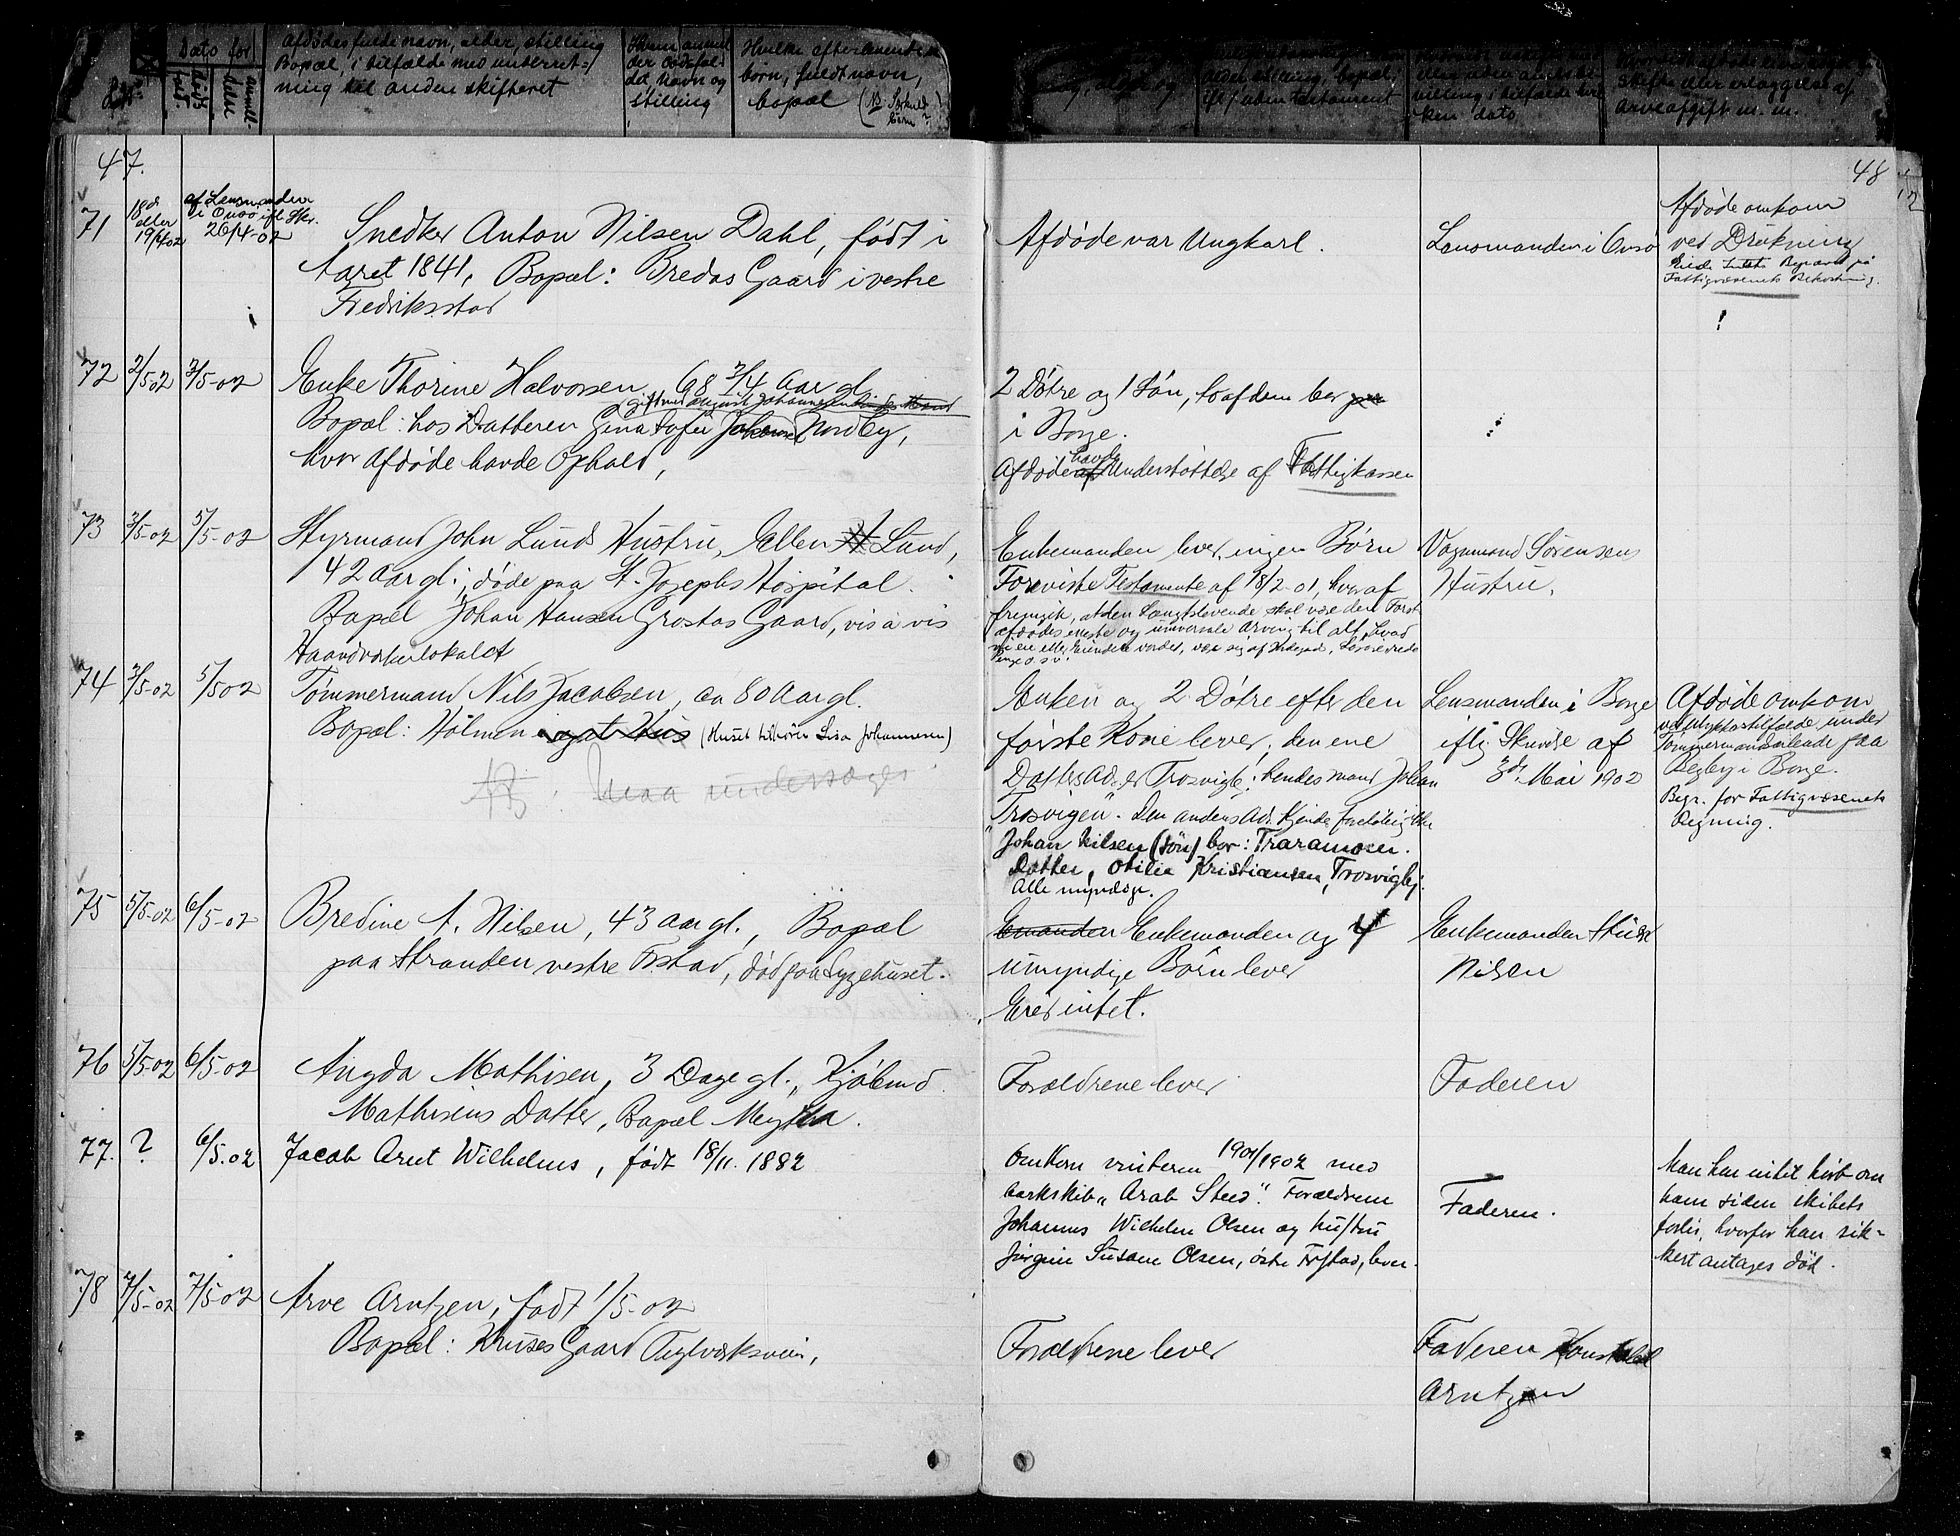 Dato for
døds
delse
anmel-
Afdødes fulde navn, alder, stilling
Bopæl, i tilfælde med underret-
ning til anden skifteret
der dødsfal-
det Navn og
stilling
Hvilke efterlevende
børn, fuldt navn,
bopæl (NB Særkuld
børn?)
alder, stilling, bopæl,
ift/uden testament
ken dato
skifte eller erlæggelse af
arveafgift m. m.
47.
48
71
18de
eller
19/4 02
af Lensmanden
i Onsø ifl Skr.
26/4-02
Snedker Anton Nilsen Dahl, født i
Aaret 1841, Bopæl: Bredes Gaard i vestre
Fredriksstad
Afdøde var Ungkarl.
Lensmanden i Onsø
Afdøde omkom
ved Drukning
Eiede Intet Begravet på
Fattigvæsenets Bekostning.
72
2/5 02
3/5-02
Enke Thorine Halvorsen, 68 3/4 Aar gl.
gift med August Johannesen
Bopæl: hos Datteren Gina Sofie Johannes Nordby,
hvor Afdøde havde Ophold,
2 Døtre og 1 Søn, to af dem bor paa
i Borge.
Afdøde havde Understøttelse af Fattigkassen
73
3/5-02
5/5-02
Styrmand John Lunds Hustru, Ellen H Lund,
42 Aar gl:, døde paa St. Josephs Hospital.
Bopæl Johan Hansen Grostøs Gaard, vis a vis
Haandværkerlokalet
Enkemanden lever, ingen Børn
Foreviste Testamente af 18/2-01, hvoraf
fremgik, at den Længstlevende skal være den Først
afdødes eneste og universale Arving til alt, hvad
Penge o.s.v.
Vognmand Sørensens
Hustru.
74
3/5-02
5/5 02
Tømmermand Nils Jacobsen, ca 80 Aar gl.
Bopæl: Holmen i eget Hus (Huset tilhører Lisa Johannesen)
NB. Maa undersøges
Enken og 2 Døtre efter den
første Kone lever, den ene
Datters Ad. er Trosvigbg: hendes mand Johan
Trosvigen". Den andens Ad. kjendes foreløbig ikke
Johan Nilsen (søn) bor: Traramosen.
Datter, Otilie Kristiansen, Trosvigbj.
Alle myndige.
Lensmanden i Borge
iflg. Skrivelse af
3de Mai 1902
Afdøde omkom
ved Ulykkestilfælde under
Tømmermandsarbeide paa
Begby i Borge.
Begr. for Fattigvæsenets
Regning.
75
5/5-02
6/5-02
Bredine A. Nilsen, 43 Aar gl., Bopæl
paa Stranden vestre Fstad, død paa Sygehuset.
Emanden Enkemanden og 4
umyndige Børn lever
Eied intet.
Enkemanden
Nilsen
76
5/5-02
6/5-02
Angda Mathisen, 3 Dage gl., Kjøbmd.
Mathisens Datter, Bopæl
Forældrene lever
Faderen
77.
?
6/5.02
Jacob Arnt Wilhelms, født 18/11. 1882
Omkom vinteren 1901/1902 med
barkskib „Arab Steed". Forældrene
Johannes Wilhelm Olsen og hustru
Jørgine Susane Olsen, østre Frstad, lever.
Faderen.
Man har intet hørt om
ham siden skibets
forlis, hvorfor han sik-
kert antages død.
78
7/5-02
7/5-02
Arve Arntzen, født 1/5-02
Bopæl: Kruses Gaard Teglværksveien,
Forældrene lever
Faderen Konstabel
Arntzen